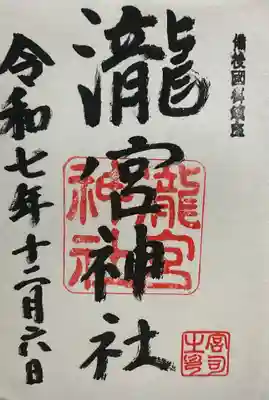 備後國御鎮座
瀧宮神社
令和七年十二月六日
瀧宮
神社
宮司
之印